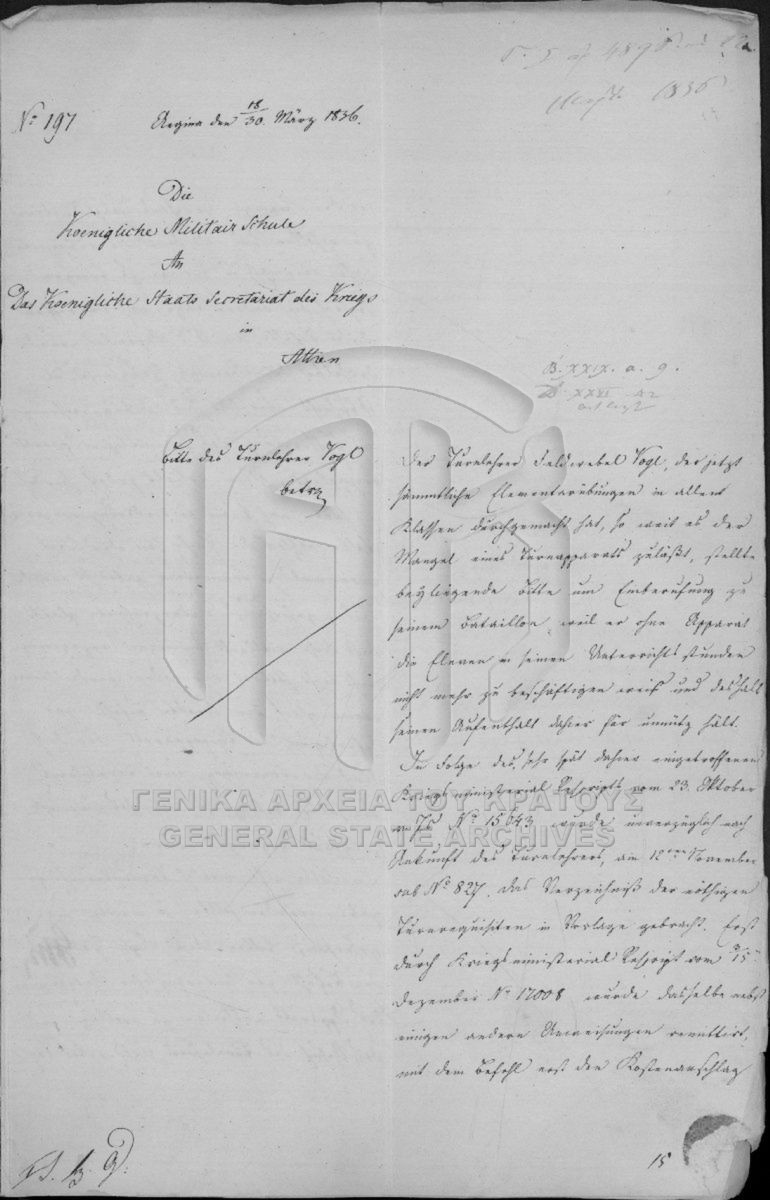 Nº 197
Aegina den 18/30. März 1836.
Die
Koenigliche Militair Schule
An
Das Koenigliche Staats Secretariat des Kriegs
in
Athen
Bitte des Turnlehrer Vogl
betr.
B. XXIX. a. 9.
XXVI
Der Turnlehrer Feldwebel Vogl, der jetzt
sämmtliche Elementarübungen in allen
Klassen durchgemacht hat, so weit es der
Mangel eines Turnapparats zuläßt, stellte
beyliegende Bitte um Einberufung zu
seinem Bataillon, weil er ohne Apparat
die Eleven in seinen Unterrichtsstunden
nicht mehr zu beschäftigen weiß und deshalb
seinen Aufenthalt dahier für unnütz hält.
In Folge des, sehr spät dahier eingetroffenen
Kriegsministerial Rescripts vom 23. Oktober
v. Js. Nº 15643 wurde unverzüglich nach
Ankunft des Turnlehrers, am 12ten November
sub Nº 827. das Verzeichniß der nöthigen
Turnrequisiten in Vorlage gebracht. Erst
durch Kriegsministerial Rescript vom
Dezember Nº 17008 wurde dasselbe nebst
einigen andern Anweisungen remittirt,
mit dem Befehl erst den Kostenanschlag
15
ΓΕΝΙΚΑ ΑΡΧΕΙΑ ΤΟΥ ΚΡΑΤΟΥΣ
GENERAL STATE ARCHIVES